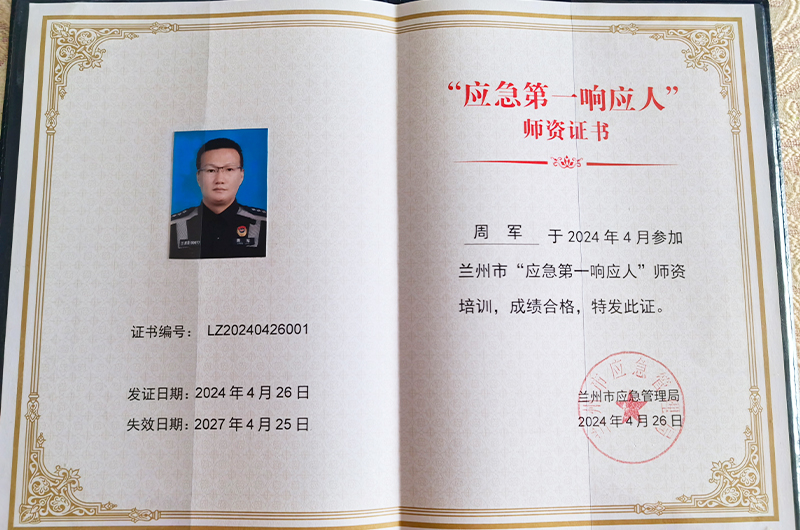 证书编号： LZ20240426001
发证日期：2024 年 4 月 26 日
失效日期：2027 年 4 月 25 日
“应急第一响应人”
师资证书
周 军 于 2024 年 4 月参加
兰州市“应急第一响应人”师资
培训，成绩合格，特发此证。
兰州市应急管理局
2024 年 4 月 26 日
兰州市应急管理局